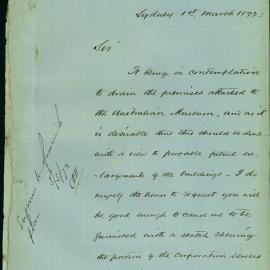 Sydney 1st March 1872
Sir
It being in contemplation
to drain the premises attached to
the Australian Museum, and as it
is desirable that this should be done
with a view to probable future en-
largements of the buildings - I do
myself the honor to request you will
be good enough to cause me to be
furnished with a sketch shewing
the portion of the Corporation Sewers